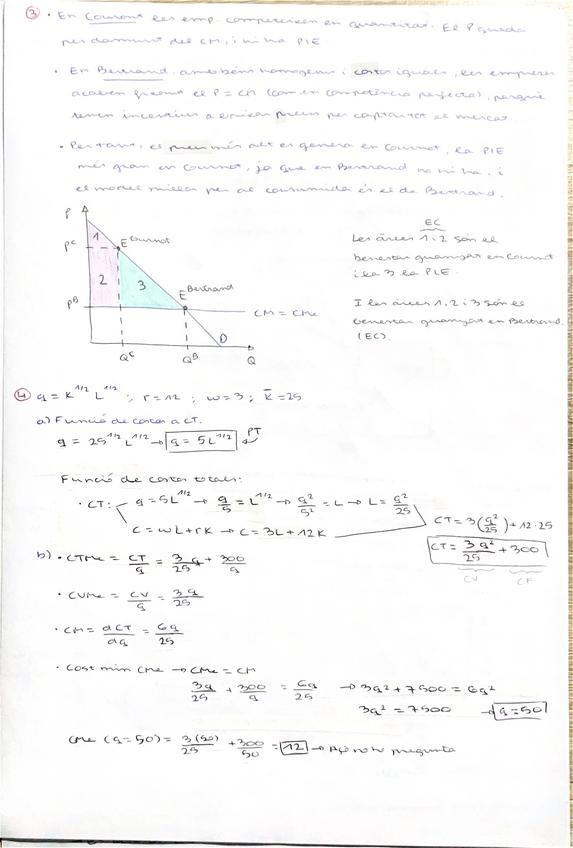 ③ • En Cournot les emp. competeixen en quantitat. El P queda
per damunt del CM, i hi ha PIE
• En Bertrand, amb béns homogenis i costos iguals, les empreses
acaben fixant el P = CM (com en competència perfecta), perquè
tenen incentius a baixar preus per captar tot el mercat
• Per tant, el preu més alt es genera en Cournot, la PIE
més gran en Cournot, ja que en Bertrand no n'hi ha, i
el model millor per al consumidor és el de Bertrand.
P
1
P^C
E^Cournot
2
3
E^Bertrand
P^B
CM = CMe
D
Q^C
Q^B
Q
EC
Les àrees 1 i 2 són el
benestar guanyat en Cournot
i la 3 la PIE.
I les àrees 1, 2 i 3 són el
benestar guanyat en Bertrand.
(EC).
④ q = K^1/2 L^1/2 ; r = 12 ; w = 3 ; K̄ = 25
a) Funció de costos a CT.
q = 25^1/2 L^1/2 → q = 5L^1/2 PT
Funció de costos totals:
• CT: q = 5L^1/2 → q/5 = L^1/2 → q²/5² = L → L = q²/25
C = wL + rK → C = 3L + 12K
CT = 3(q²/25) + 12·25
CT = 3q²/25 + 300
CV CF
b) • CTMe = CT/q = 3q/25 + 300/q
• CVMe = CV/q = 3q/25
• CM = dCT/dq = 6q/25
• Cost min CMe → CMe = CM
3q/25 + 300/q = 6q/25 → 3q² + 7500 = 6q²
3q² = 7500 → q = 50
CMe (q = 50) = 3(50)/25 + 300/50 = 12 → Açò no ho pregunta